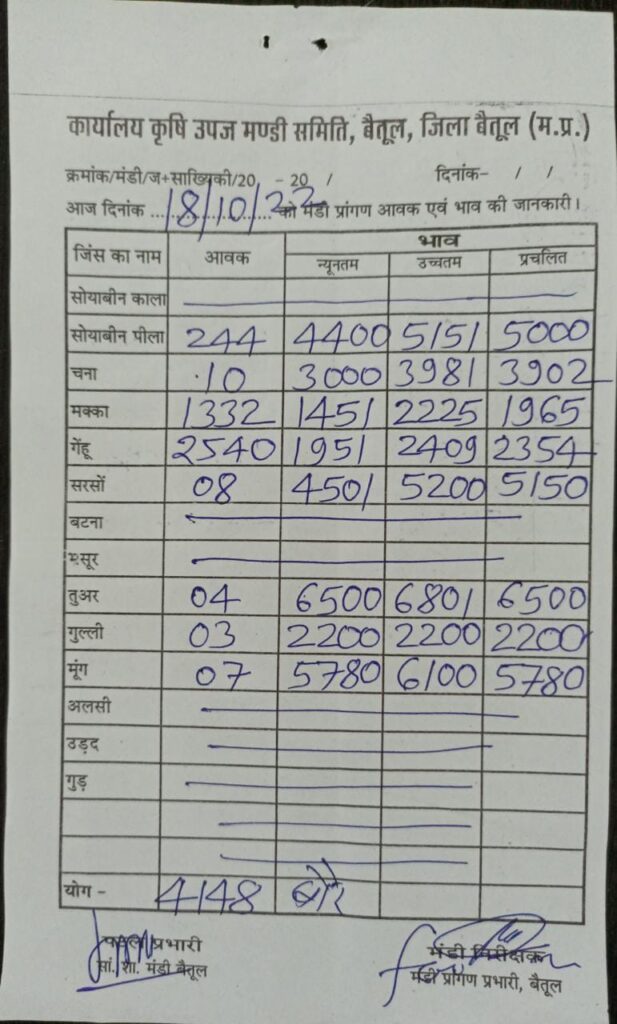 कार्यालय कृषि उपज मण्डी समिति, बैतूल, जिला बैतूल (म.प्र.)
क्रमांक/मंडी/ज+साख्यिकी/20 - 20 / दिनांक- / /
आज दिनांक ...18/10/22... को मंडी प्रांगण आवक एवं भाव की जानकारी।
जिंस का नाम आवक भाव
न्यूनतम उच्चतम प्रचलित
सोयाबीन काला
सोयाबीन पीला 244 4400 5151 5000
चना 10 3000 3981 3902
मक्का 1332 1451 2225 1965
गेंहू 2540 1951 2409 2354
सरसों 08 4501 5200 5150
बटना
मसूर
तुअर 04 6500 6801 6500
गुल्ली 03 2200 2200 2200
मूंग 07 5780 6100 5780
अलसी
उड़द
गुड़
योग - 4148 बोरे
प्रभारी मंडी निरीक्षक
सां. शा. मंडी बैतूल मंडी प्रांगण प्रभारी, बैतूल